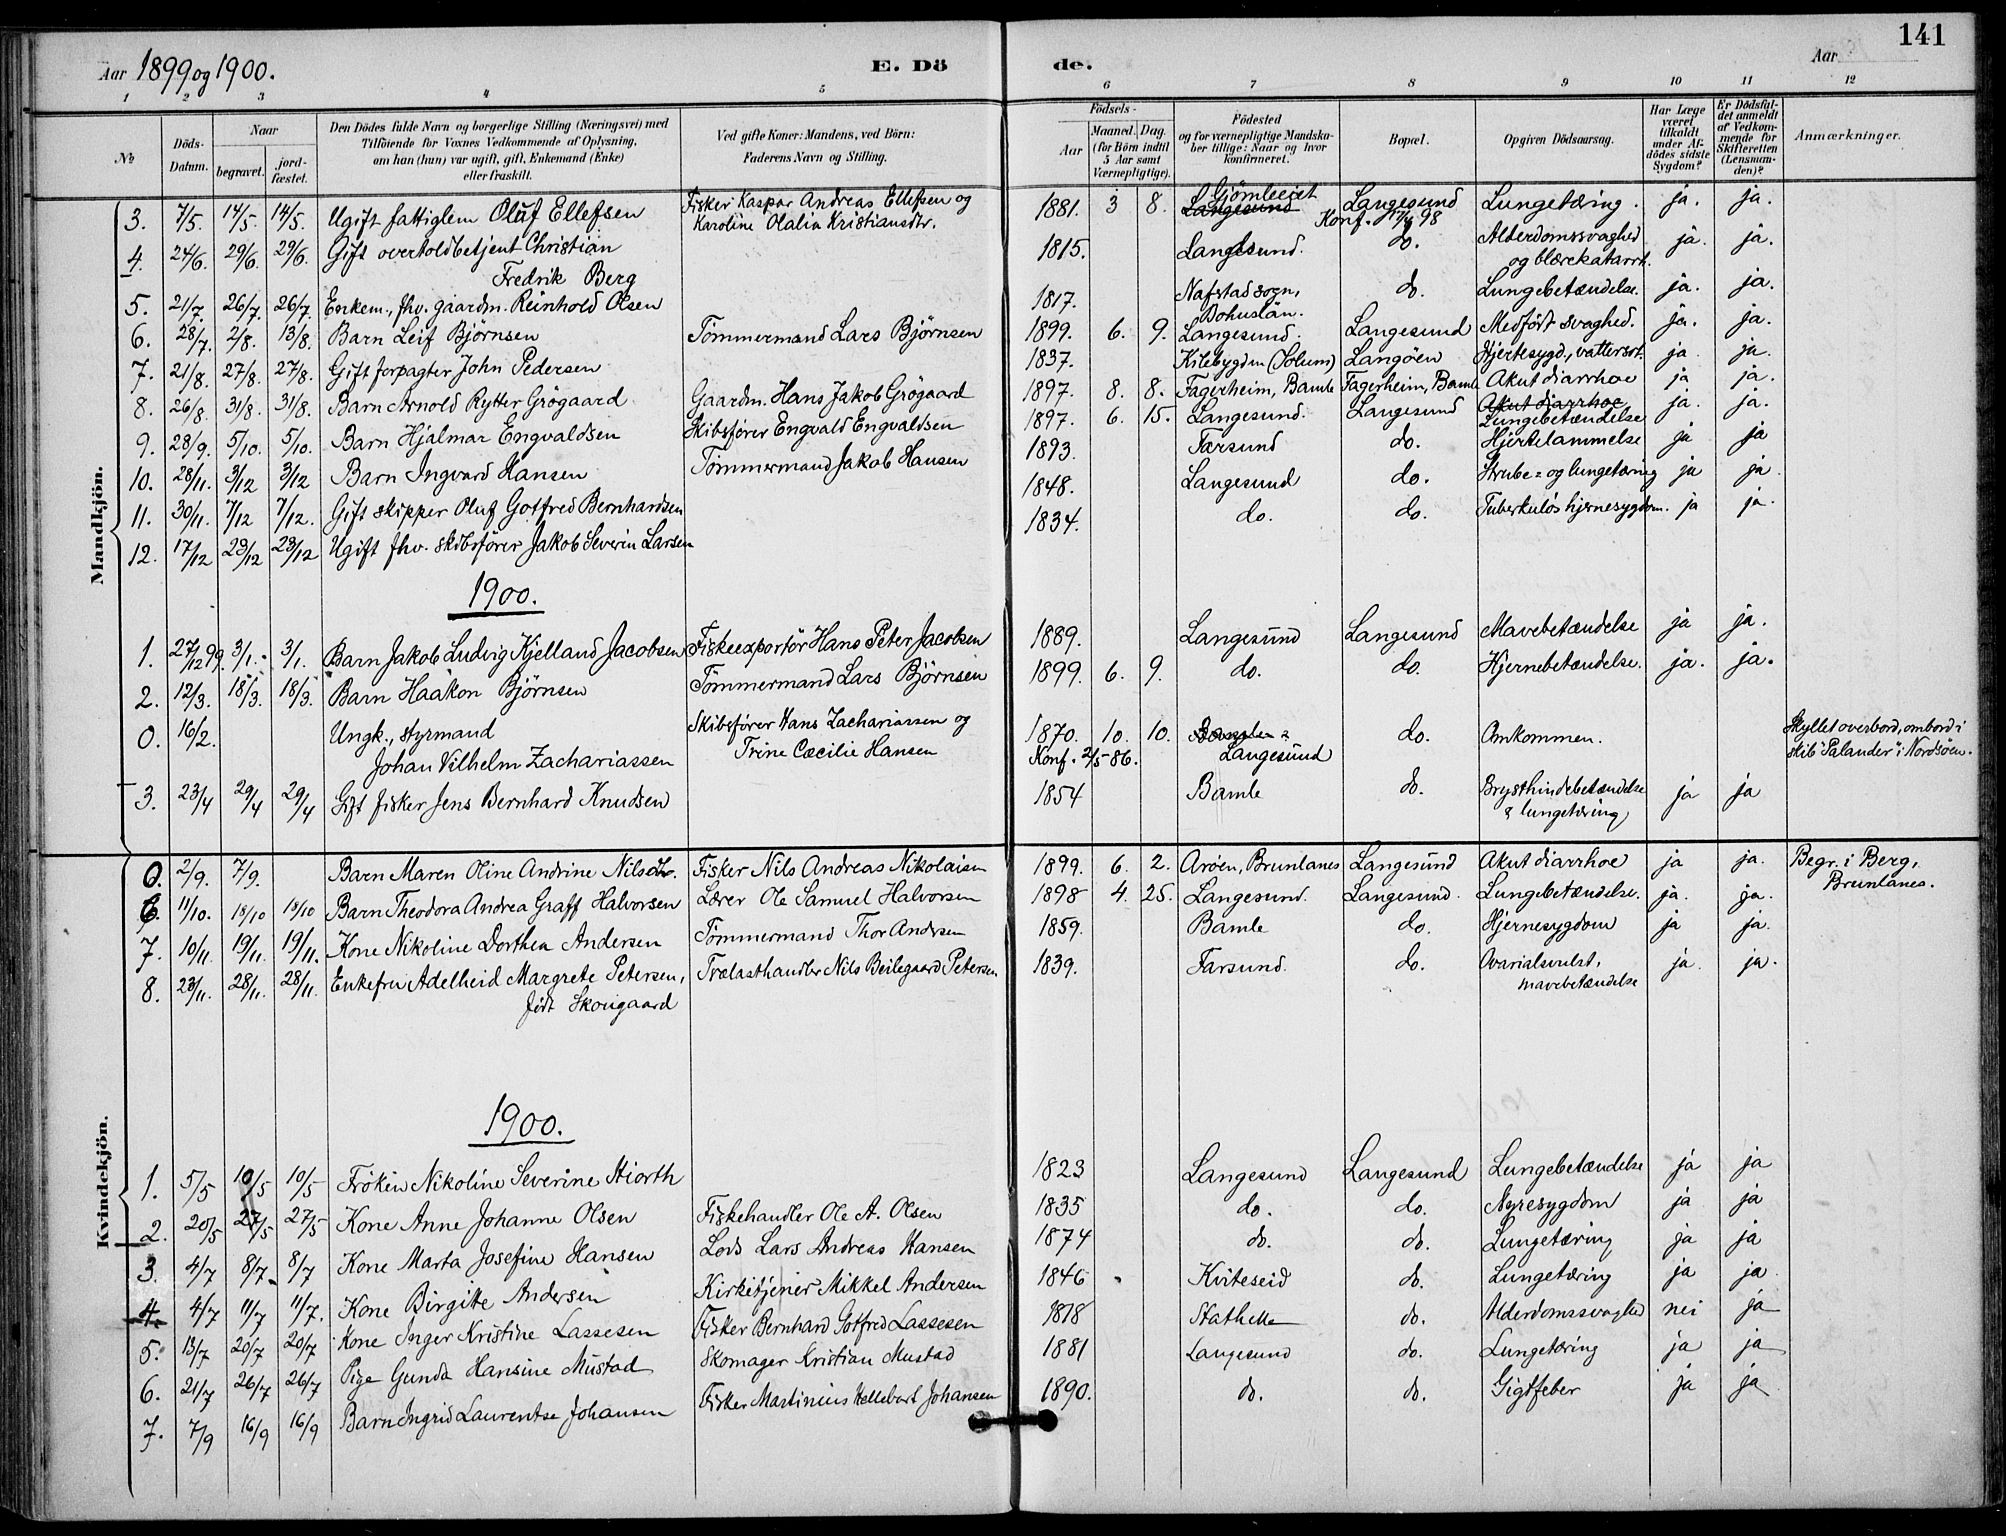 141
Aar 1899 og 1900. E. Dö de. Aar
1 2 3 4 5 6 7 8 9 10 11 12
№ Döds-Datum. Naar begravet. jord-fæstet. Den Dödes fulde Navn og borgerlige Stilling (Næringsvei) med Tilföiende for Voxnes Vedkommende af Oplysning, om han (hun) var ugift, gift, Enkemand (Enke) eller fraskilt. Ved gifte Koner: Mandens, ved Börn: Faderens Navn og Stilling. Födsels- Aar Maaned. Dag. (for Börn indtil 5 Aar samt Værnepligtige). Födested og for værnepligtige Mandskaber tillige: Naar og hvor konfirmeret. Bopæl. Opgiven Dödsaarsag. Har Læge været tilkaldt under Afdödes sidste Sygdom? Er Dödsfaldet anmeldt af Vedkommende for Skifteretten (Lensmanden)? Anmærkninger.
Mandkjön.
3. 7/5. 14/5. 14/5. Ugift fattiglem Oluf Ellefsen Fisker Kaspar Andreas Ellefsen og Karoline Olalia Kristiansdtr. 1881. 3 8. Langesund Langesund Konf. 98 Lungetæring. ja. ja.
4. 24/6. 29/6. 29/6. Gift overtoldbetjent Christian Fredrik Berg 1815. Langesund. do. Alderdomssvaghed og blærekatarrh. ja. ja.
5. 21/7. 26/7. 26/7. Enkem., fhv. gaardm. Reinhold Olsen 1817. Nafstad sogn, Bohuslän. do. Lungebetændelse. ja. ja.
6. 28/7. 2/8. 13/8. Barn Leif Björnsen Tömmermand Lars Björnsen 1899. 6. 9. Langesund. Langesund Medfödt svaghed. ja. ja.
7. 21/8. 27/8. 27/8. Gift forpagter John Pedersen 1837. Kilebygden (Solum) Langöen Hjertesygd., vattersot. ja ja.
8. 26/8. 31/8. 31/8. Barn Arnold Rytter Grögaard Gaardm. Hans Jakob Grögaard 1897. 8. 8. Fagerheim, Bamle Fagerheim, Bamle Akut diarrhoe ja ja.
9. 28/9. 5/10. 5/10. Barn Hjalmar Engvaldsen Skibsförer Engvald Engvaldsen 1897. 6. 15. Langesund. Langesund Akut diarrhoe Lungebetændelse ja. ja.
10. 28/11. 3/12 3/12 Barn Ingvard Hansen Tömmermand Jakob Hansen 1893. Farsund do. Hjertelammelse ja ja
11. 30/11. 7/12 7/12. Gift skipper Oluf Gotfred Bernhardsen 1848. Langesund do. Strube= og lungetæring ja ja.
12. 17/12 23/12 23/12 Ugift fhv. skibsförer Jakob Severin Larsen 1834. do. do. Tuberkulös hjernesygdom. ja ja.
1900.
1. 27/12 99. 3/1. 3/1. Barn Jakob Ludvig Kjelland Jacobsen Fiskeexportör Hans Peter Jacobsen 1889. Langesund Langesund Mavebetændelse ja ja.
2. 12/3. 18/3. 18/3. Barn Haakon Björnsen Tömmermand Lars Björnsen 1899. 6. 9. do. do. Hjernebetændelse. ja. ja.
0. 16/2. Ungk., styrmand Johan Vilhelm Zachariassen Skibsförer Hans Zachariassen og Trine Cæcilie Hansen 1870. 10. 10. Konf. 2/5-86. Langesund do. Omkommen. Skyllet overbord, ombord i skib "Palander" i Nordsöen.
3. 23/4 29/4 29/4 Gift fisker Jens Bernhard Knudsen 1854 Bamle do. Brysthindebetændelse & lungetæring ja ja
Kvindekjön.
0. 2/9. 7/9. Barn Maren Oline Andrine Nilsdtr. Fisker Nils Andreas Nikolaisen 1899. 6. 2. Aröen, Brunlanes Langesund Akut diarrhoe ja ja. Begr. i Berg, Brunlanes.
6. 11/10. 18/10 18/10 Barn Theodora Andrea Graff Halvorsen Lærer Ole Samuel Halvorsen 1898 4. 25. Langesund. Langesund. Lungebetændelse. ja. ja.
7. 10/11. 19/11. 19/11. Kone Nikoline Dorthea Andersen Tömmermand Thor Andersen 1859. Bamle do. Hjernesygdom ja ja.
8. 23/11. 28/11. 28/11. Enkefru Adelheid Margrete Petersen, födt Skougaard Trælasthandler Nils Beilegaard Petersen 1839. Farsund. do. Ovarialsvulst, mavebetændelse ja. ja.
1900.
1. 5/5 10/5 10/5 Fröken Nikoline Severine Hiorth 1823 Langesund Langesund Lungebetændelse ja ja
2. 20/5 27/5 27/5 Kone Anne Johanne Olsen Fiskehandler Ole A. Olsen 1835 do. do. Nyresygdom ja ja
3. 4/7 8/7 8/7 Kone Marta Josefine Hansen Lods Lars Andreas Hansen 1874 do. do. Lungetæring ja ja
4. 4/7 11/7 11/7. Kone Birgitte Andersen Kirketjener Mikkel Andersen 1846 Kviteseid do. Lungetæring ja ja
5. 13/7 20/7 20/7 Kone Inger Kristine Lassesen Fisker Bernhard Gotfred Lassesen 1818 Stathelle do. Alderdomssvaghed nei ja
6. 21/7 26/7 26/7 Pige Gunda Hansine Mustad Skomager Kristian Mustad 1881 Langesund do. Lungetæring ja ja
7. 7/9 16/9 16/9 Barn Ingrid Laurentse Johansen Fisker Martinius Hellebart Johansen 1890. do. do. Gigtfeber ja ja